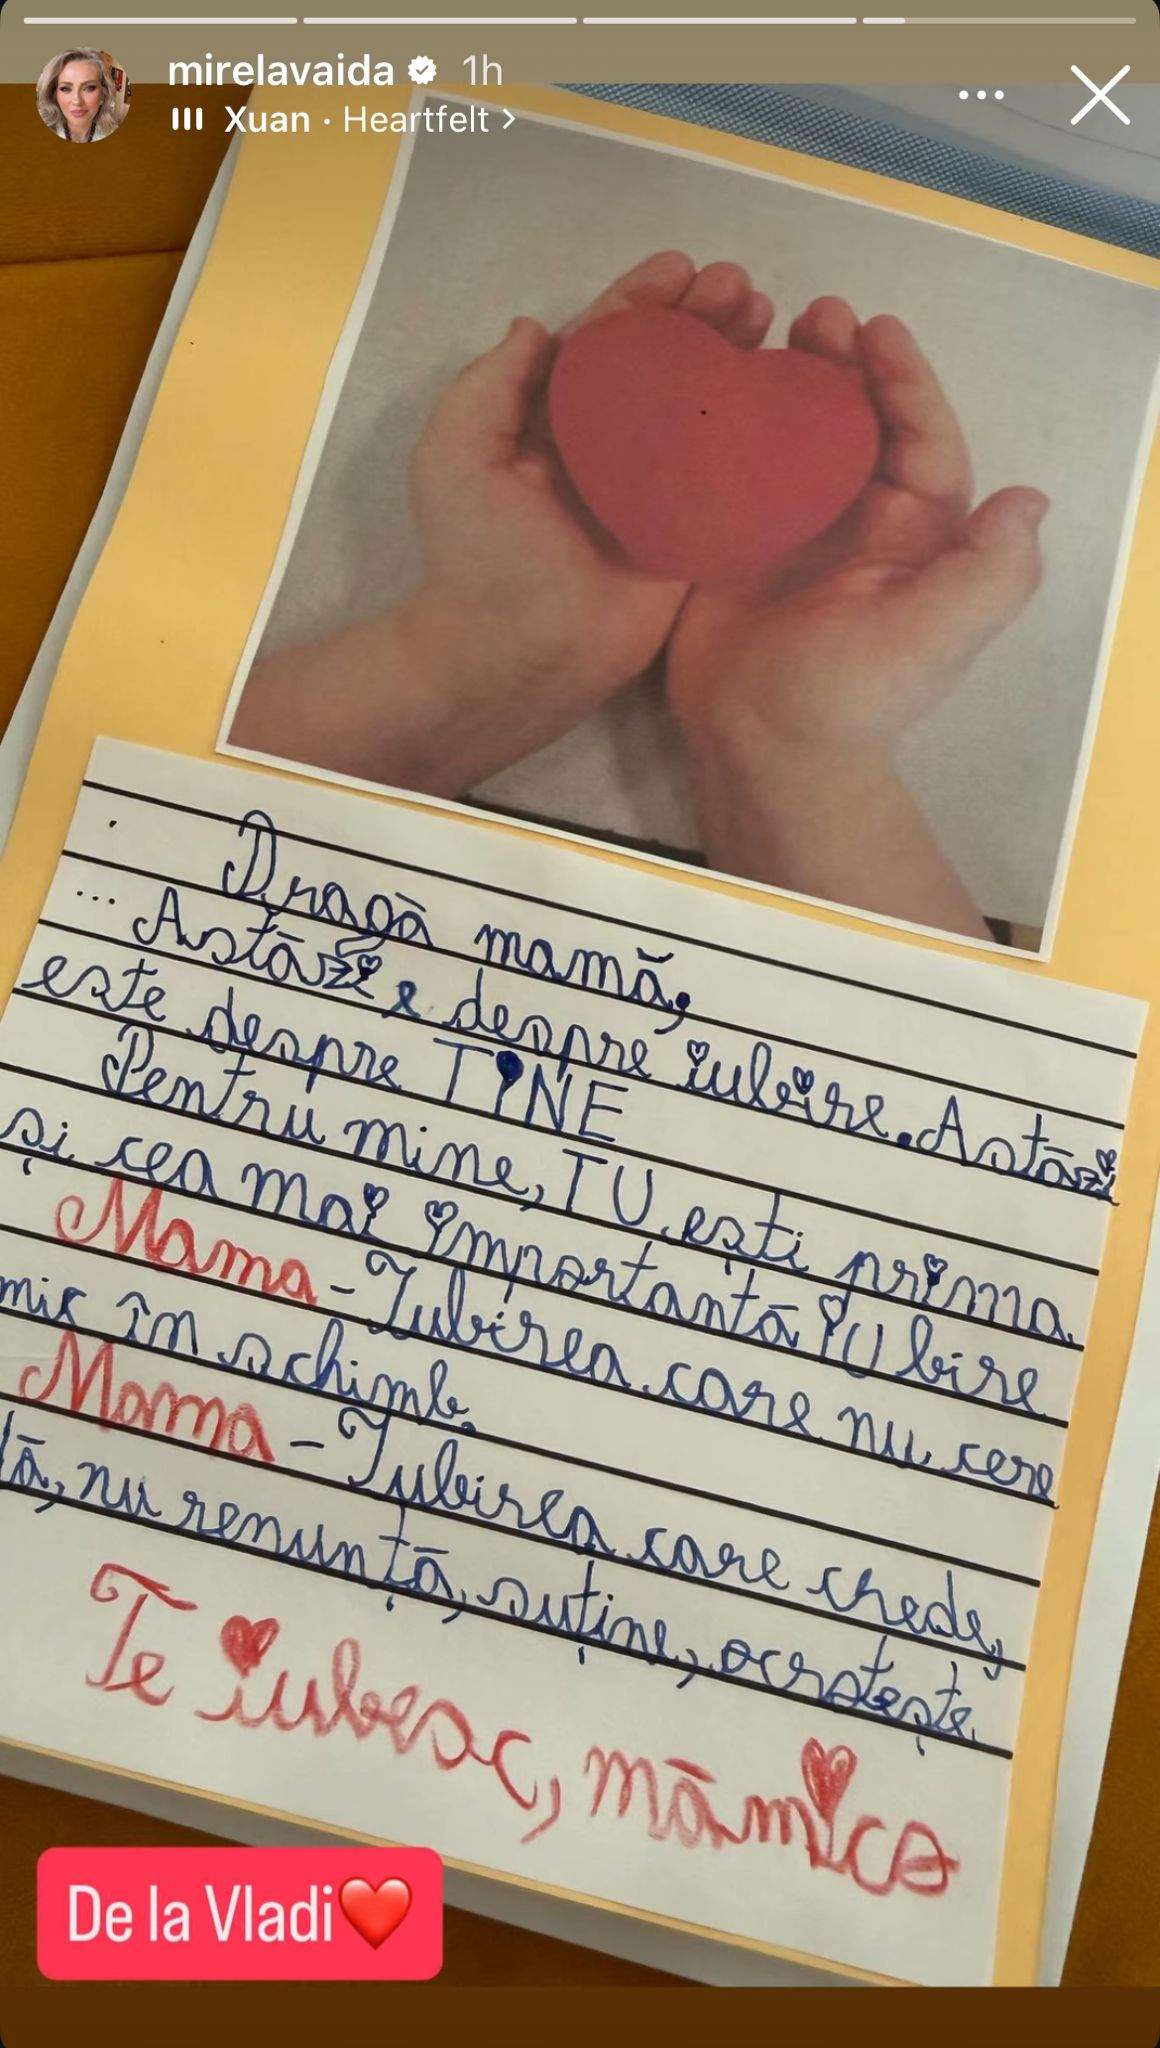 mirelavaida 1h
Xuan · Heartfelt >
Dragă mamă,
... Astăzi e despre iubire. Astăzi
este despre TINE
Pentru mine, TU ești prima
și cea mai importantă IUbire
Mama - Iubirea care nu cere
nimic în schimb.
Mama - Iubirea care crede,
tă, nu renunță, suține, ocrotește.
Te iubesc, mămica
De la Vladi❤️